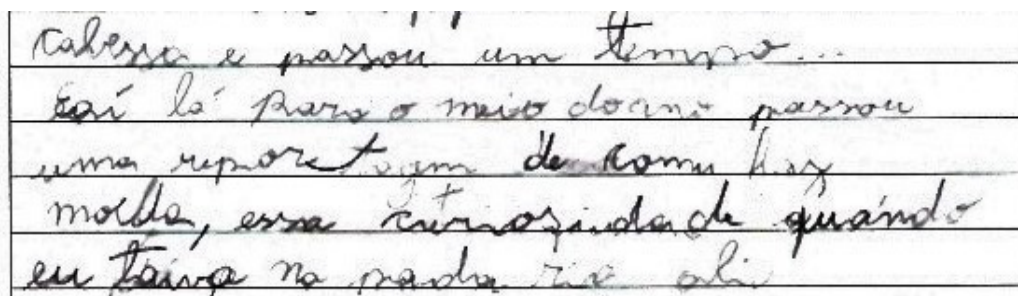 cabessa e passou um tempo...
Eaí lá para o meio do ano passou
uma reportagem de como faz
molda, essa curiosidade quando
eu tava na padaria ali